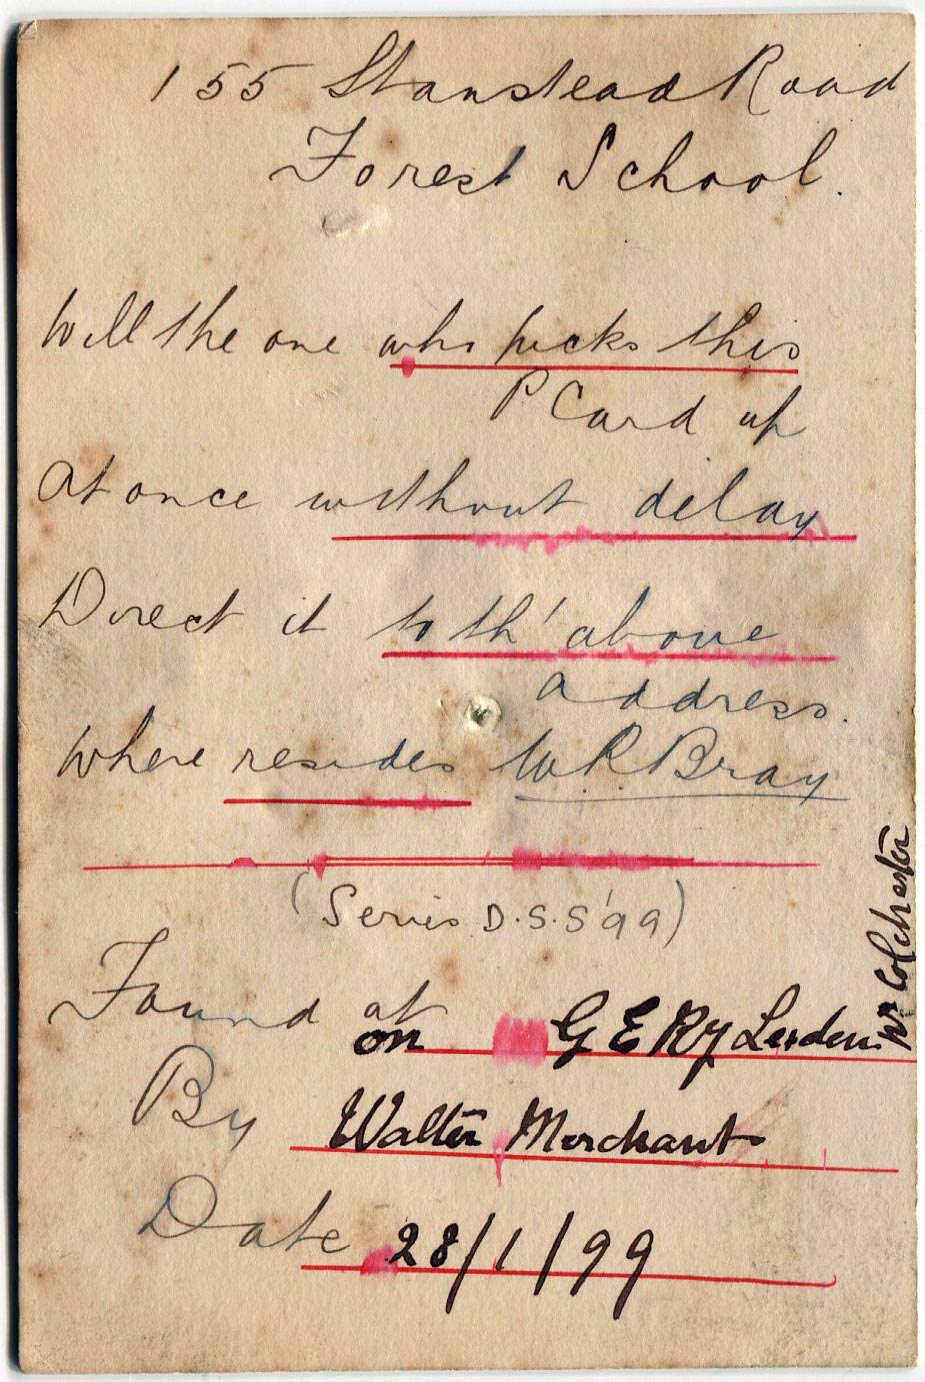 155 Stanstead Road
Forest School.
Will the one who picks this
P Card up
At once without delay
Direct it to th' above
address.
Where resides W.R. Bray
(Series D.S.S '99)
Found at
on G E Ry Lexden
Nr Colchester
By Walter Merchant
Date 28/1/99